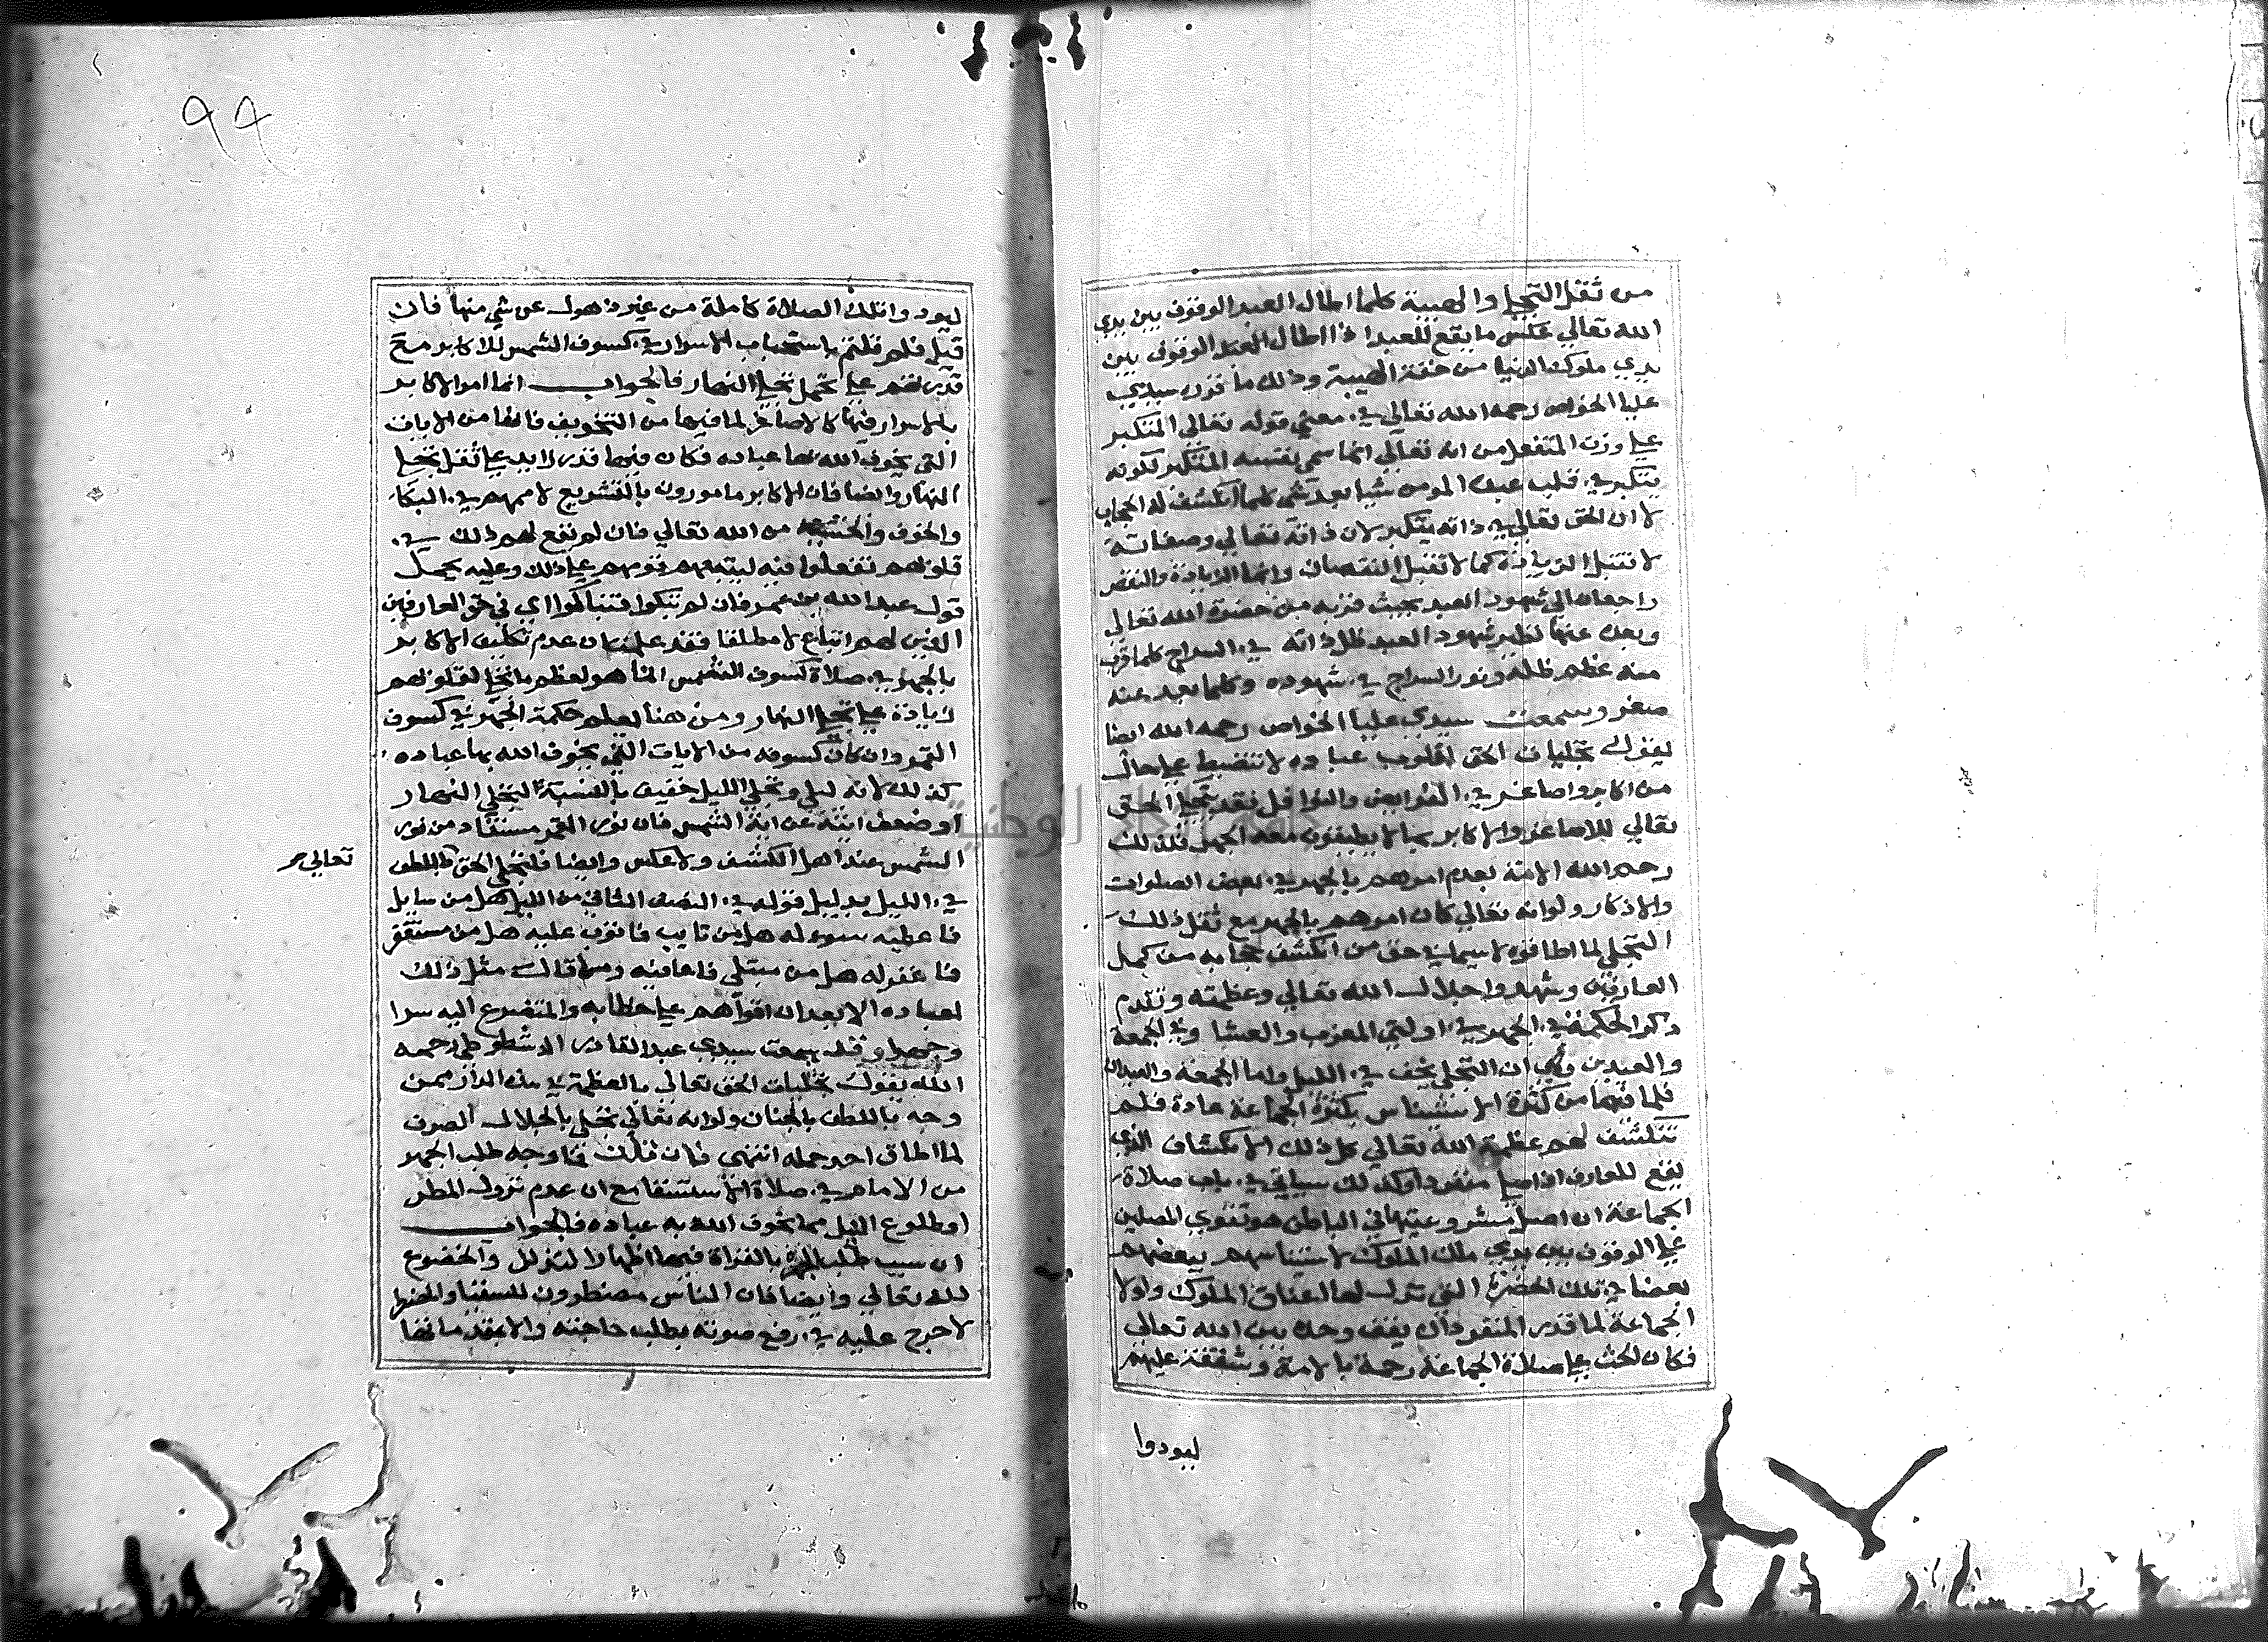 من ثقل التجلي والهيبة كلما اطال العبد الوقوف بين يدي
الله تعالي عكس ما يقع للعبد اذا اطال العبد الوقوف بين
يدي ملوك الدنيا من خفة الهيبة وذلك ما قرره سيدي
عليا الخواص رحمه الله تعالي في معني قوله تعالي المتكبر
علي وزن المتفعل من انه تعالي انما سمي نفسه المتكبر لكونه
يتكبر في قلب عبده المومن شيا بعد شي كلما انكشف له الحجاب
لا ان الحق تعالي في ذاته يتكبر لان ذاته تعالي وصفاته
لا تقبل الزيادة كما لا تقبل النقصان وانما الزيادة والنقص
راجعان الي شهود العبد بحيث قربه من حضرة الله تعالي
وبعده عنها نظير شهود العبد ظل ذاته في السراج كلما قرب
منه عظم ظله ونور السراج في شهوده وكلما بعد عنه
صغر وسمعت سيدي عليا الخواص رحمه الله ايضا
يقول تجليات الحق لقلوب عباده لا تنضبط علي حال
من الاكابر واصاغر في الفرايض والنوافل فقد يتجلي الحق
تعالي للاصاغر والاكابر بما لا يطيقون معه الجهر فلذلك
رحم الله الامة بعدم امرهم بالجهر في بعض الصلوات
والاذكار ولو انه تعالي كان امرهم بالجهر مع ثقل ذلك
التجلي لما اطاقوه لا سيما في حق من انكشف حجابه من كمل
العارفين وشهدوا جلال الله تعالي وعظمته وتقدم
ذكر الحكمة في الجهر في اولتي المغرب والعشا وفي الجمعة
والعيدين وهي ان التجلي يخف في الليل واما الجمعة والعيدان
فلما فيهما من كثرة الاستيناس بكثرة الجماعة عادة فلم
تنكشف لهم عظمة الله تعالي كل ذلك الانكشاف الذي
يقع للعارف اذا صلي منفردا وكذلك سياتي في باب صلاة
الجماعة ان اصل مشروعيتها في الباطن هو تقوي المصلين
علي الوقوف بين يدي ملك الملوك لاستيناسهم ببعضهم
بعضا في تلك الحضرة التي تذل لها اعناق الملوك ولولا
الجماعة لما قدر المنفرد ان يقف وحده بين الله تعالي
فكان الحث علي صلاة الجماعة رحمة بالامة وشفقة عليهم
ليودوا
٩٩
ليودوا تلك الصلاة كاملة من غير ذهول عن شي منها فان
قيل فلم قلتم باستحباب الاسرار في كسوف الشمس للاكابر مع
قدرتهم علي تحمل تجلي النهار فالجواب انما امر الاكابر
بالاسرار فيها كالاصاغر لما فيها من التخويف فانها من الايات
التي يخوف الله بها عباده فكان فيها قدر زايد علي ثقل تجلي
النهار وايضا فان الاكابر مامورون بالتشريع لاممهم في البكا
والخوف والخشية من الله تعالي فان لم يقع لهم ذلك في
قلوبهم تفعلوا فيه ليتبعهم قومهم علي ذلك وعليه يحمل
قول عبد الله بن عمر فان لم تبكوا فتباكوا اي في حق العارفين
الذين لهم اتباع لا مطلقا فقد علمت ان عدم تكليف الاكابر
بالجهر في صلاة كسوف الشمس انما هو لعظم ما تجلي لقلوبهم
زيادة علي تجلي النهار ومن هنا يعلم حكمة الجهر في كسوف
القمر وان كان كسوفه من الايات التي يخوف الله بها عباده
كذلك لانه ليلي وتجلي الليل خفيف بالنسبة لتجلي النهار
او ضعف ايته عن اية الشمس فان نور القمر مستفاد من نور
الشمس عند اهل الكشف ولا عكس وايضا فلتجلي الحق باللطف
تعالي صح
في الليل بدليل قوله في النصف الثاني من الليل هل من سايل
فاعطيه سوله هل من تايب فاتوب عليه هل من مستغفر
فاغفر له هل من مبتلي فاعافيه وما قال مثل ذلك
لعباده الا بعد ان اقواهم علي خطابه والتضرع اليه سرا
وجهرا وقد سمعت سيدي عبد القادر الدشطوطي رحمه
الله يقول تجليات الحق تعالي بالعظمة في هذه الدار ممن
وجه باللطف بالجنان ولو انه تعالي تجلي بالجلال الصرف
لما اطاق احد حمله انتهي فان قلت فما وجه طلب الجهر
من الامام في صلاة الاستسقا مع ان عدم نزول المطر
او طلوع النيل مما يخوف الله به عباده فالجواب
ان سبب طلب الجهر بالقراة فيها اظهارا للتذلل والخضوع
لله تعالي وايضا فان الناس مضطرون للسقيا والمضطر
لا حرج عليه في رفع صوته بطلب حاجته والا بقدر ما لها